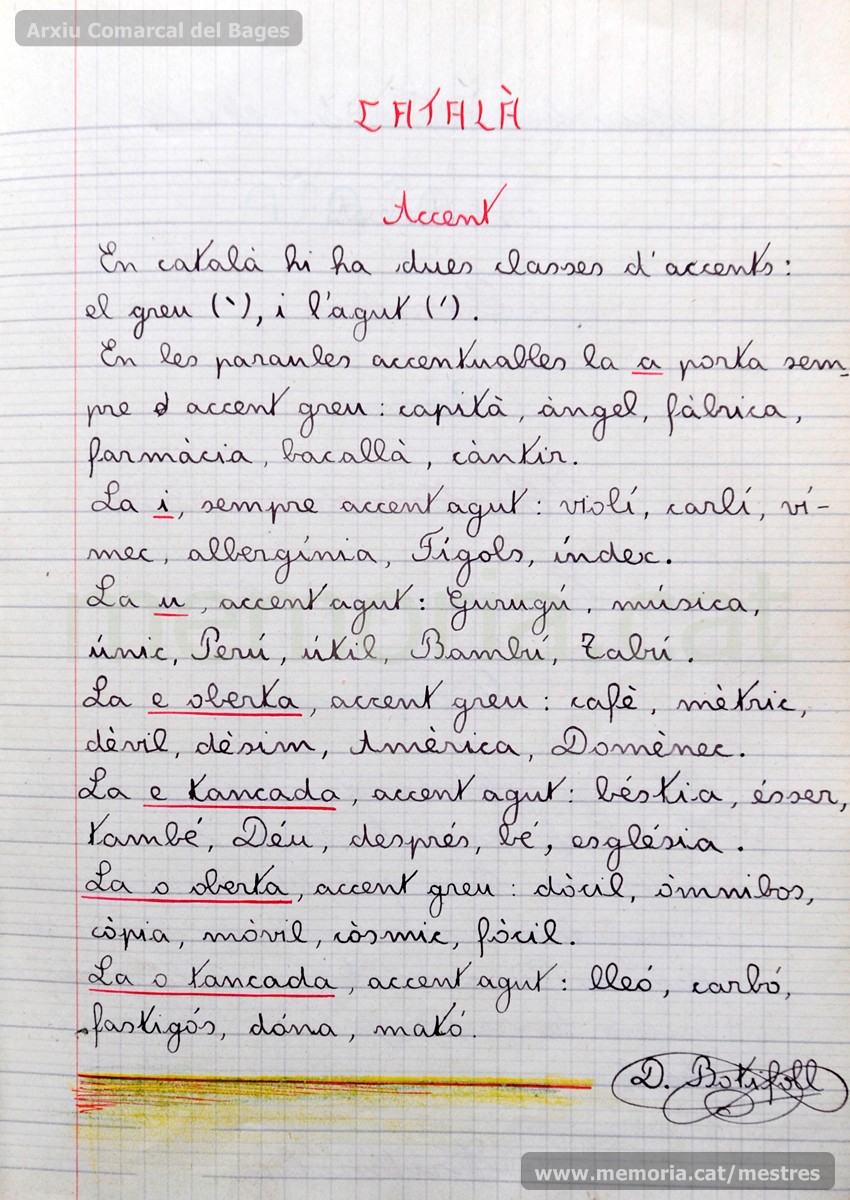 Arxiu Comarcal del Bages
CATALÀ
Accent
En català hi ha dues classes d'accents:
el greu (`), i l'agut (´).
En les paraules accentuables la a porta sem-
pre accent greu: capità, àngel, fàbrica,
farmàcia, bacallà, càntir.
La i, sempre accent agut: violí, carlí, ví-
mec, albergínia, Fígols, índex.
La u, accent agut: Gurugú, música,
únic, Perú, útil, Bambú, Zabú.
La e oberta, accent greu: cafè, mètric,
dèvil, dèsim, Amèrica, Domènec.
La e tancada, accent agut: béstia, ésser,
també, Déu, després, bé, església.
La o oberta, accent greu: dòcil, òmnibos,
còpia, mòvil, còsmic, fòcil.
La o tancada, accent agut: lleó, carbó,
fastigós, dóna, mató.
D. Botifoll
www.memoria.cat/mestres